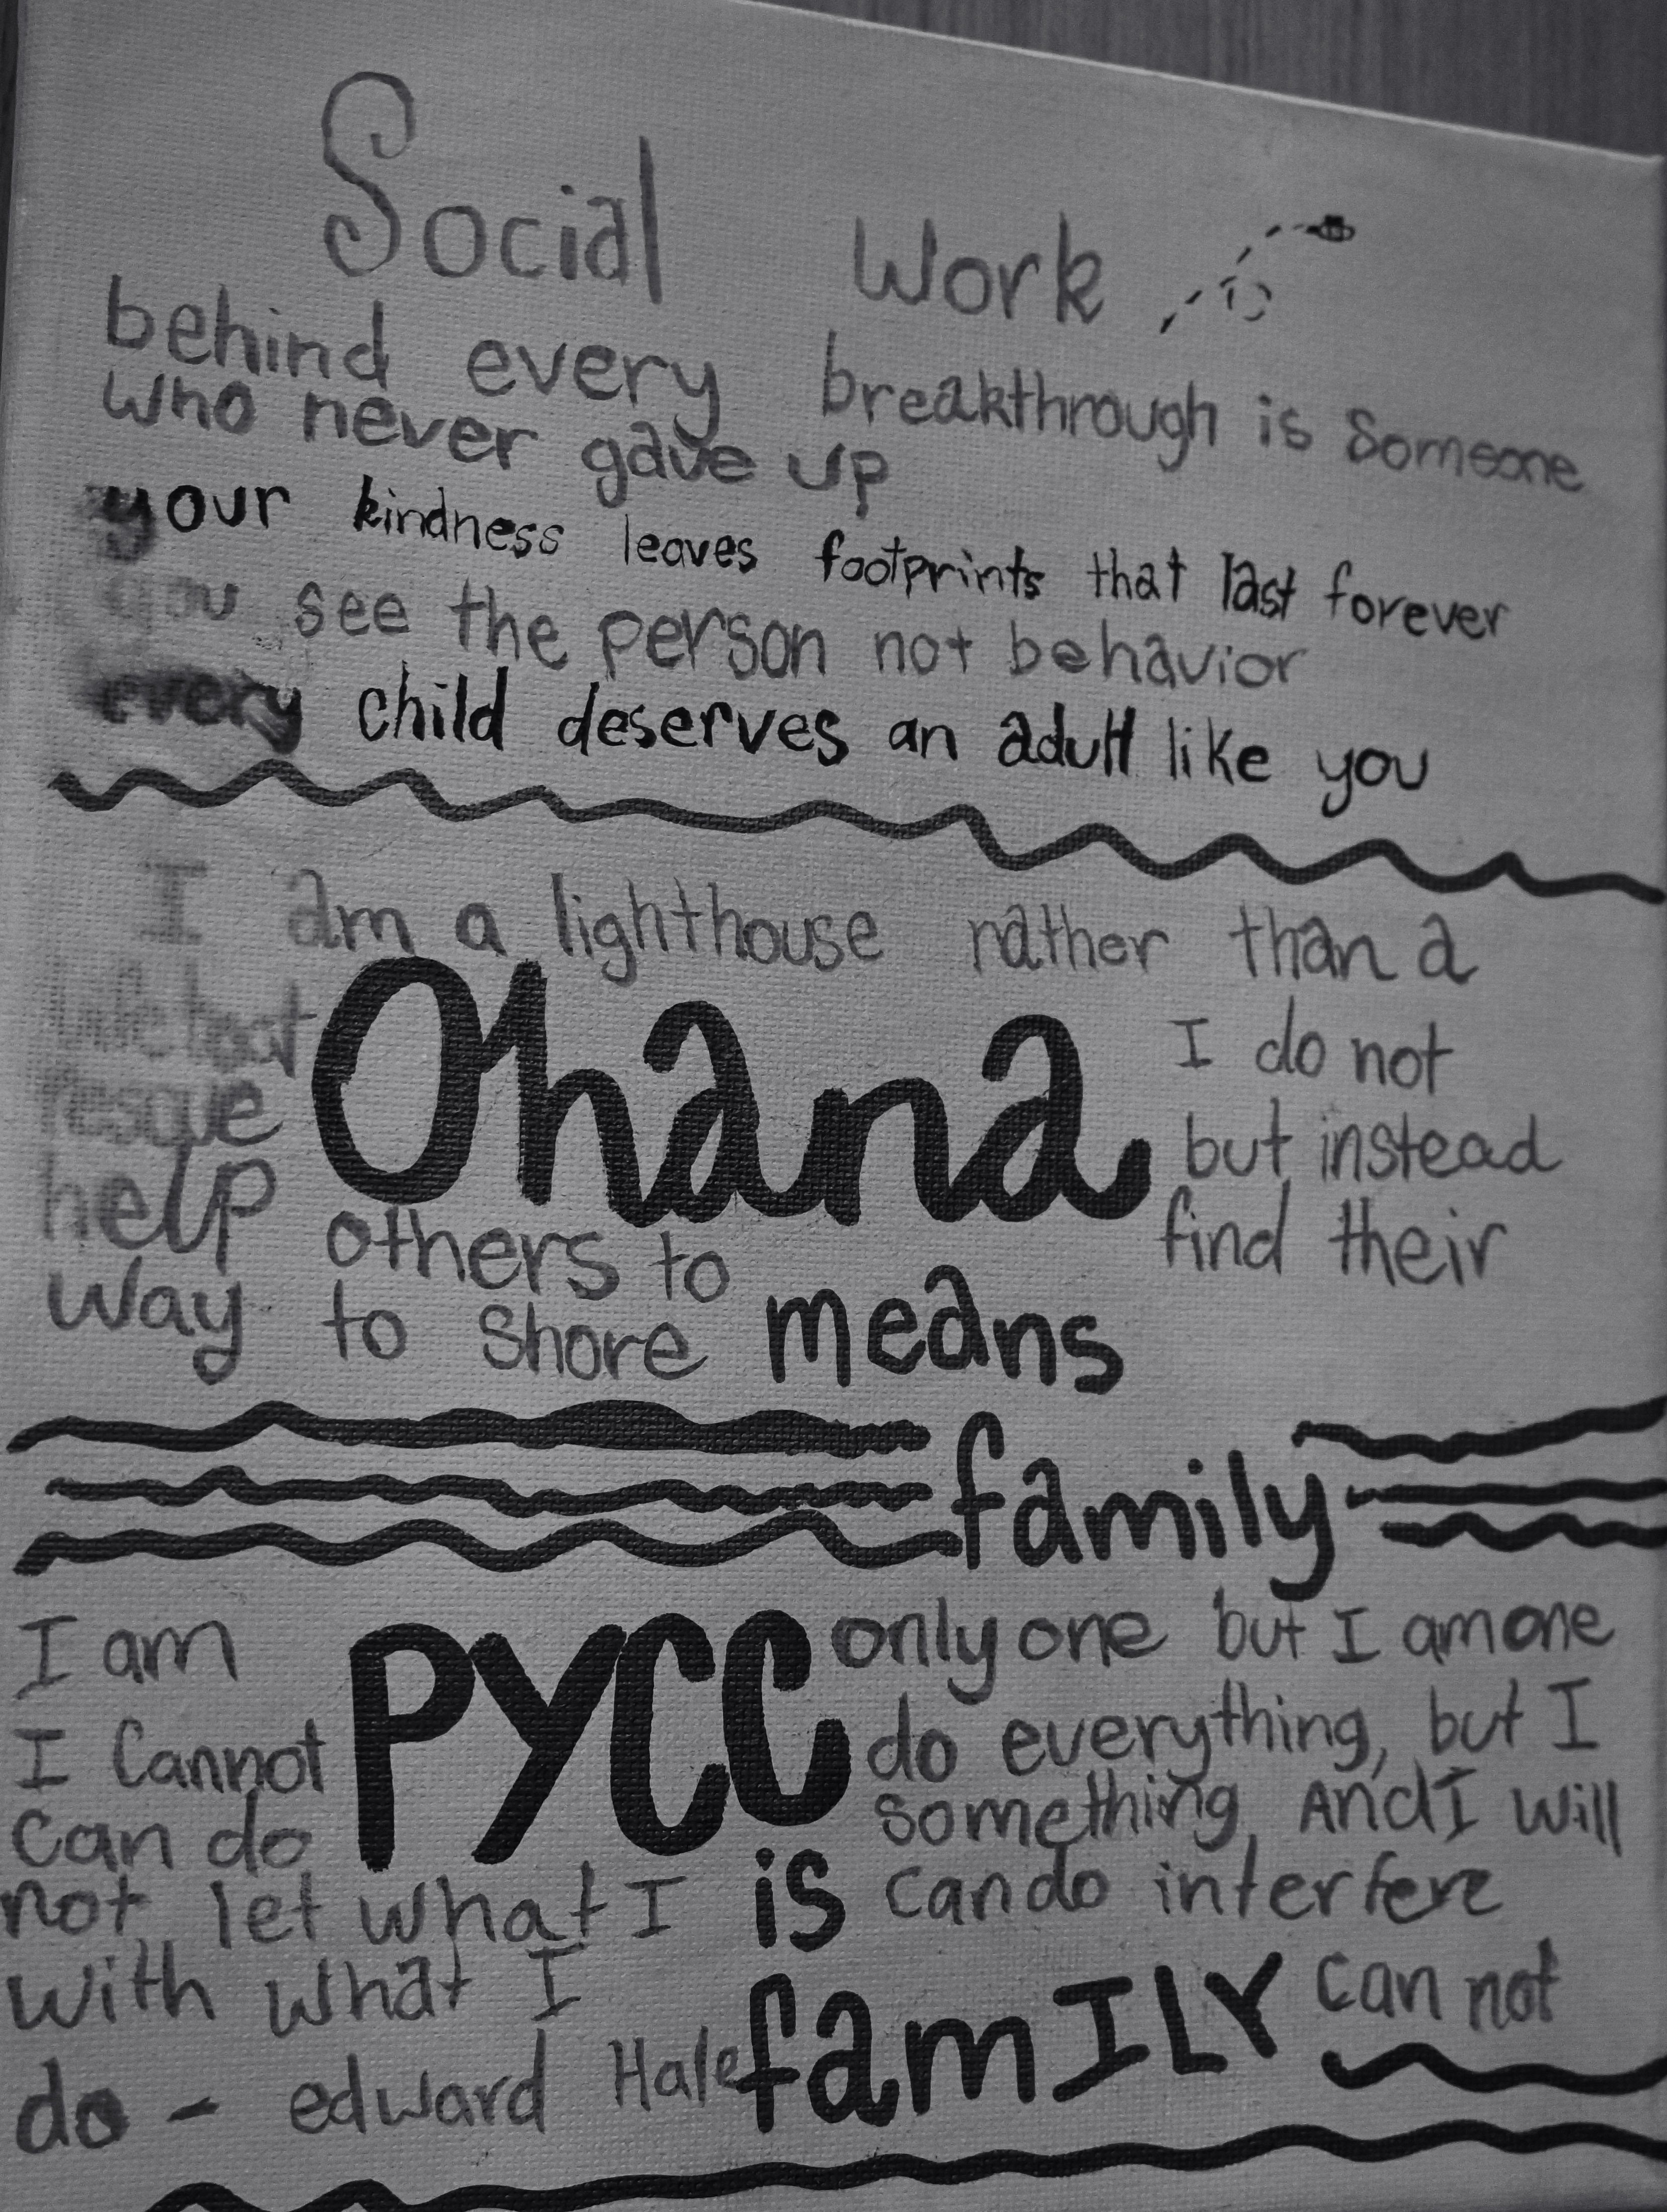 Social Work
behind every breakthrough is someone
who never gave up
your kindness leaves footprints that last forever
you see the person not behavior
every child deserves an adult like you
I am a lighthouse rather than a
lifeboat I do not
rescue but instead
help others to find their
way to shore
Ohana
means
family
PYCC
is
famILY
I am only one but I am one
I Cannot do everything, but I
can do something, And I will
not let what I can do interfere
with what I can not
do - edward Hale